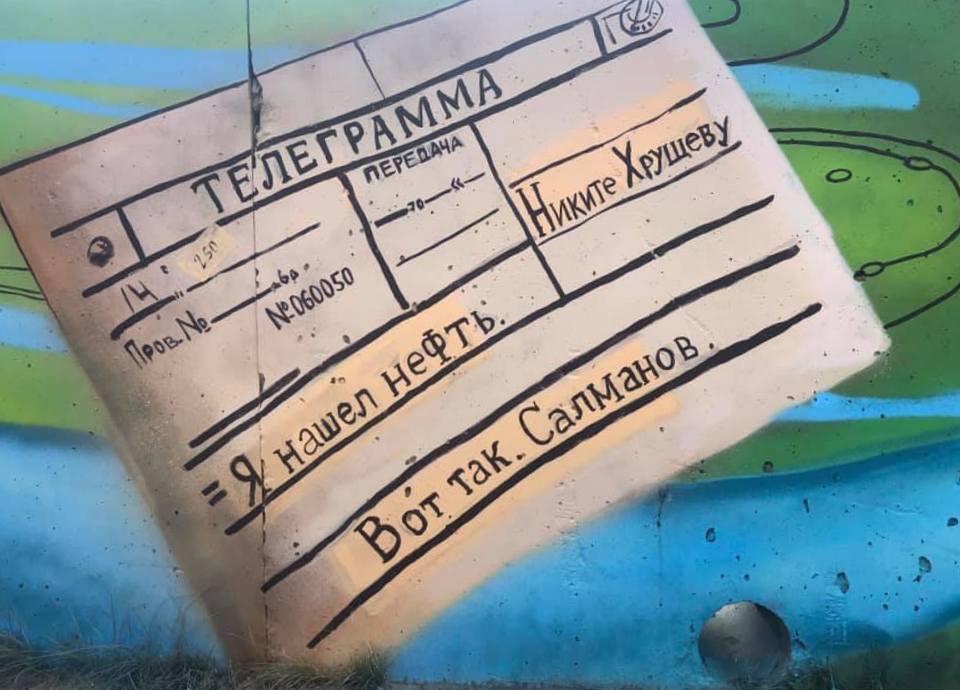 ТЕЛЕГРАММА
ПЕРЕДАЧА
Никите Хрущеву
14 " 250 "
го «
Пров. №
№060050
= Я нашел нефть.
Вот так. Салманов.